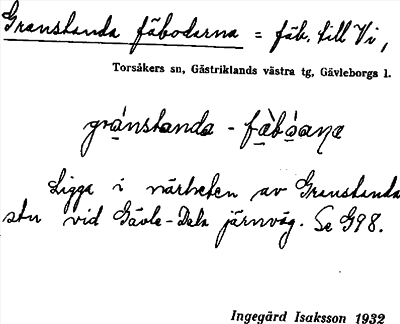 Granstanda fäbodarna = fäb. till Vi,
Torsåkers sn, Gästriklands västra tg, Gävleborgs l.
gránstanda - fæ̀bɷ̀aṇa
Ligga i närheten av Granstanda
stn vid Gävle-Dala järnväg. Se G98.
Ingegärd Isaksson 1932